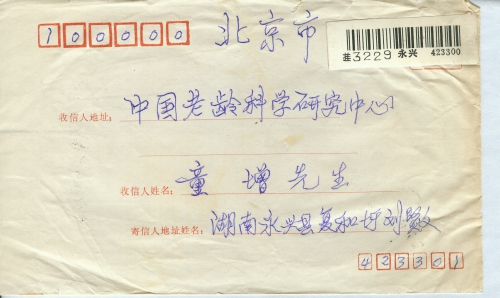 100000
北京市
挂3229 永兴 423300
收信人地址:中国老龄科学研究中心
收信人姓名:童增先生
寄信人地址姓名:湖南永兴县复和圩刘
423301